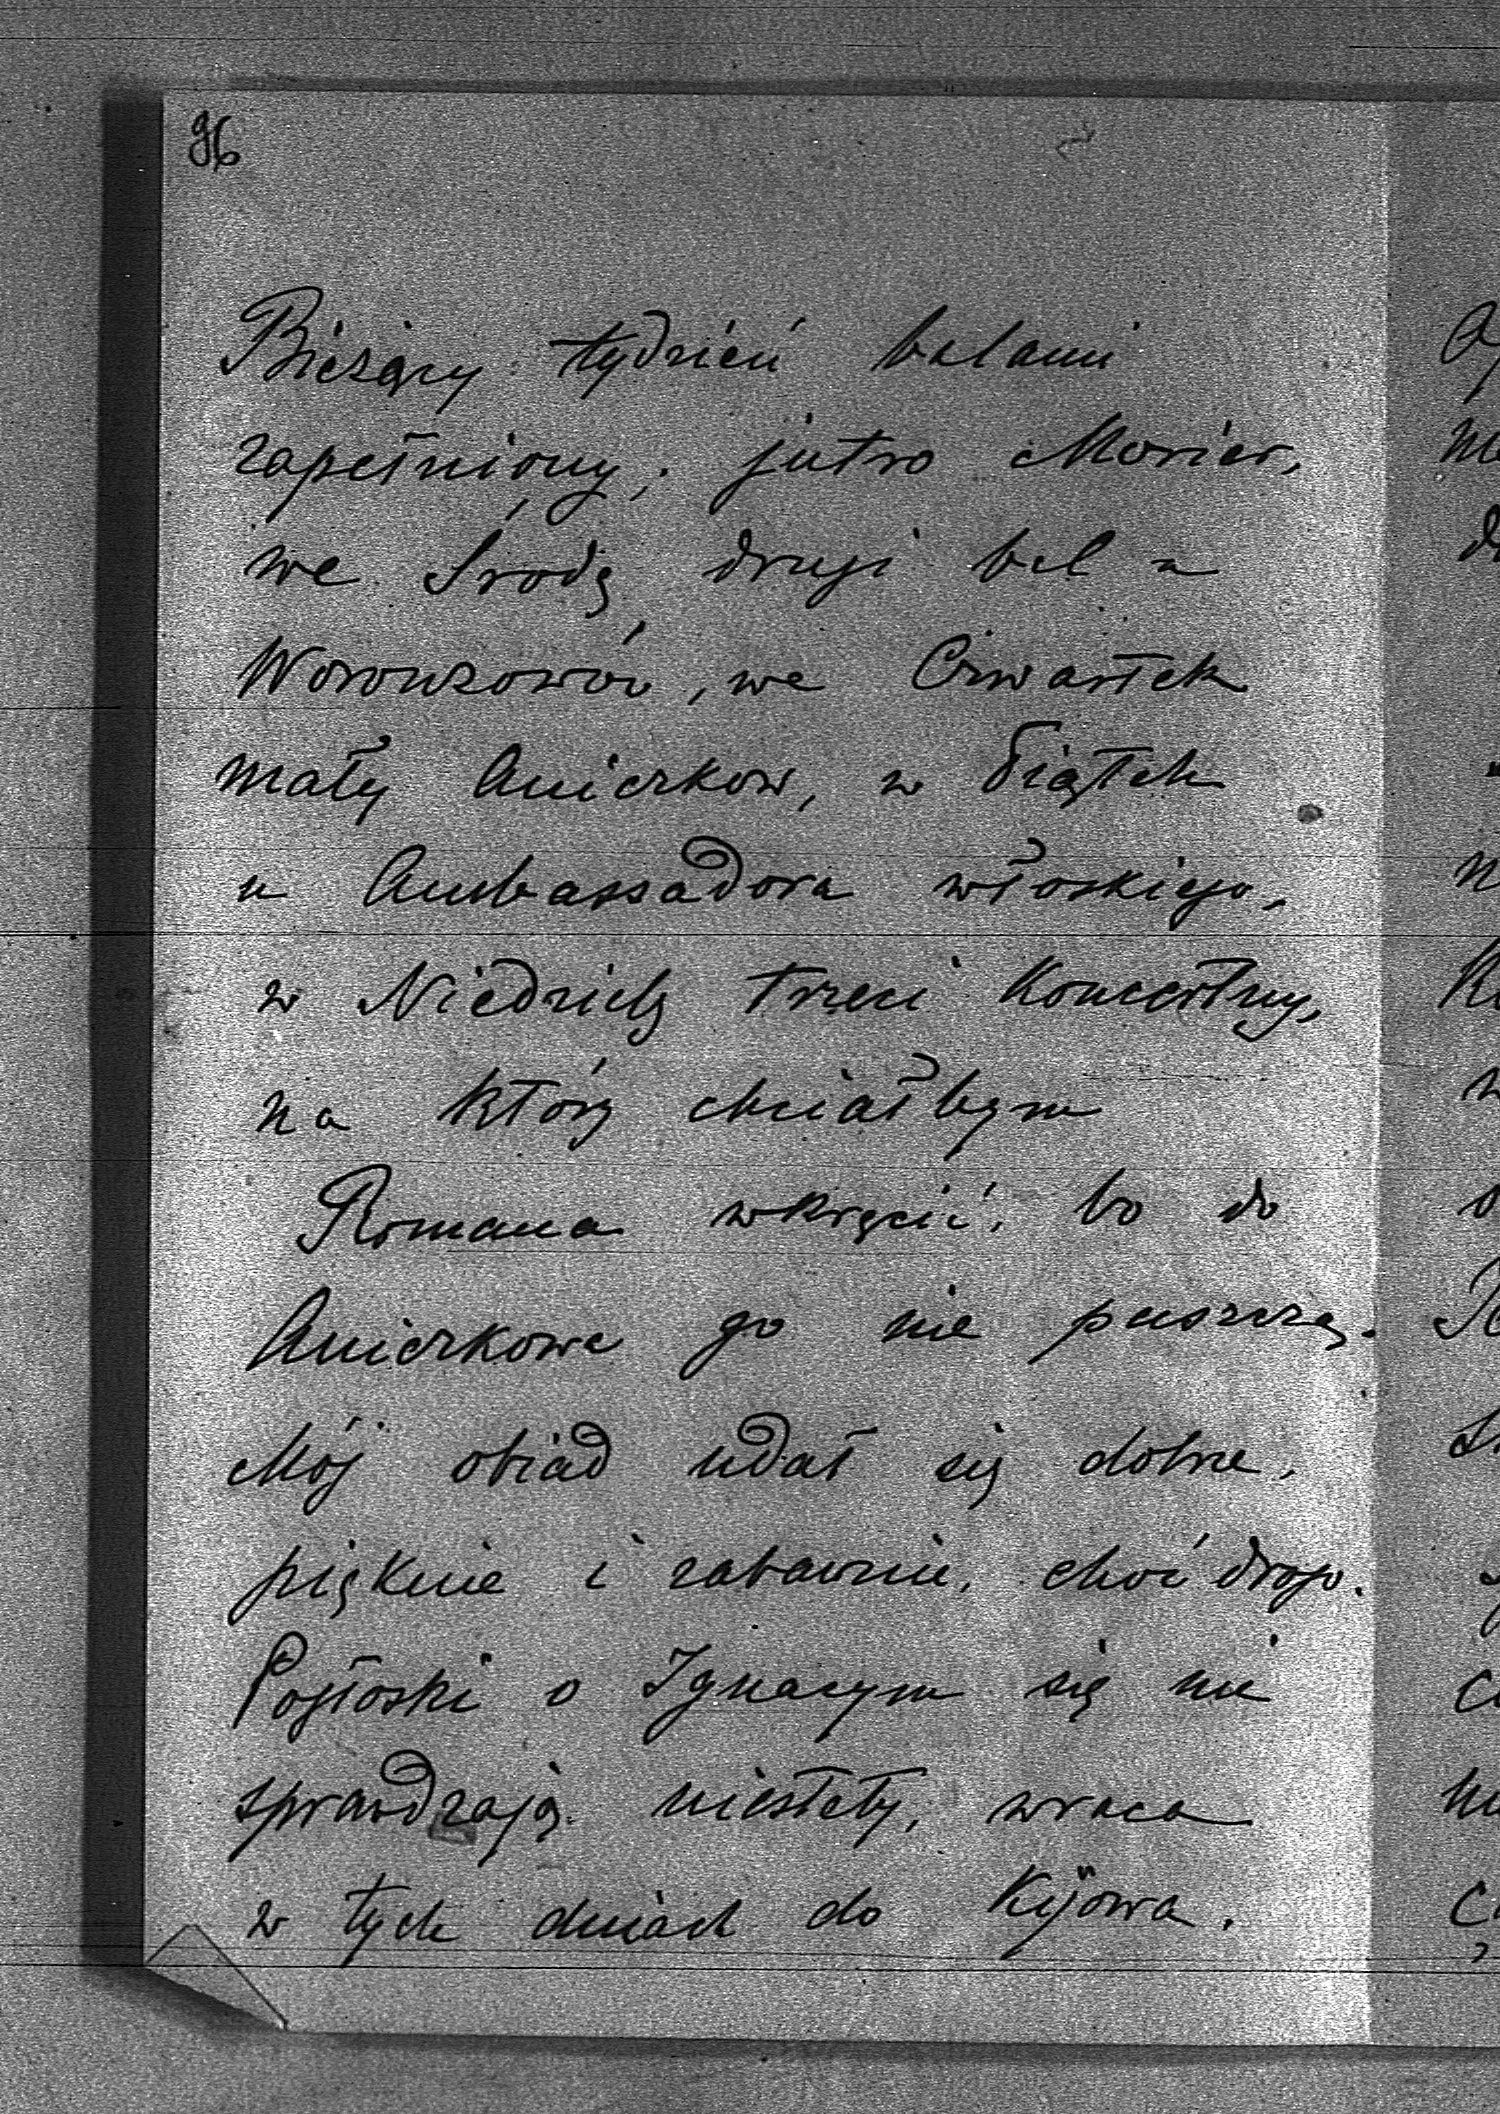 96
Bieżący tydzień balami
zapełniony, jutro Morier,
we Środę drugi bal u
Woronzowów, we Czwartek
mały Aniczkow, w Piątek
u Ambassadora włoskiego,
w Niedzielę trzeci Koncertny,
na który chciałbym
Romana wkręcić, bo do
Aniczkowa go nie puszczą.
Mój obiad udał się dobrze,
pięknie i zabawnie, choć drogo.
Pogłoski o Ignacym się nie
sprawdzają niestety, wraca
w tych dniach do Kijowa.